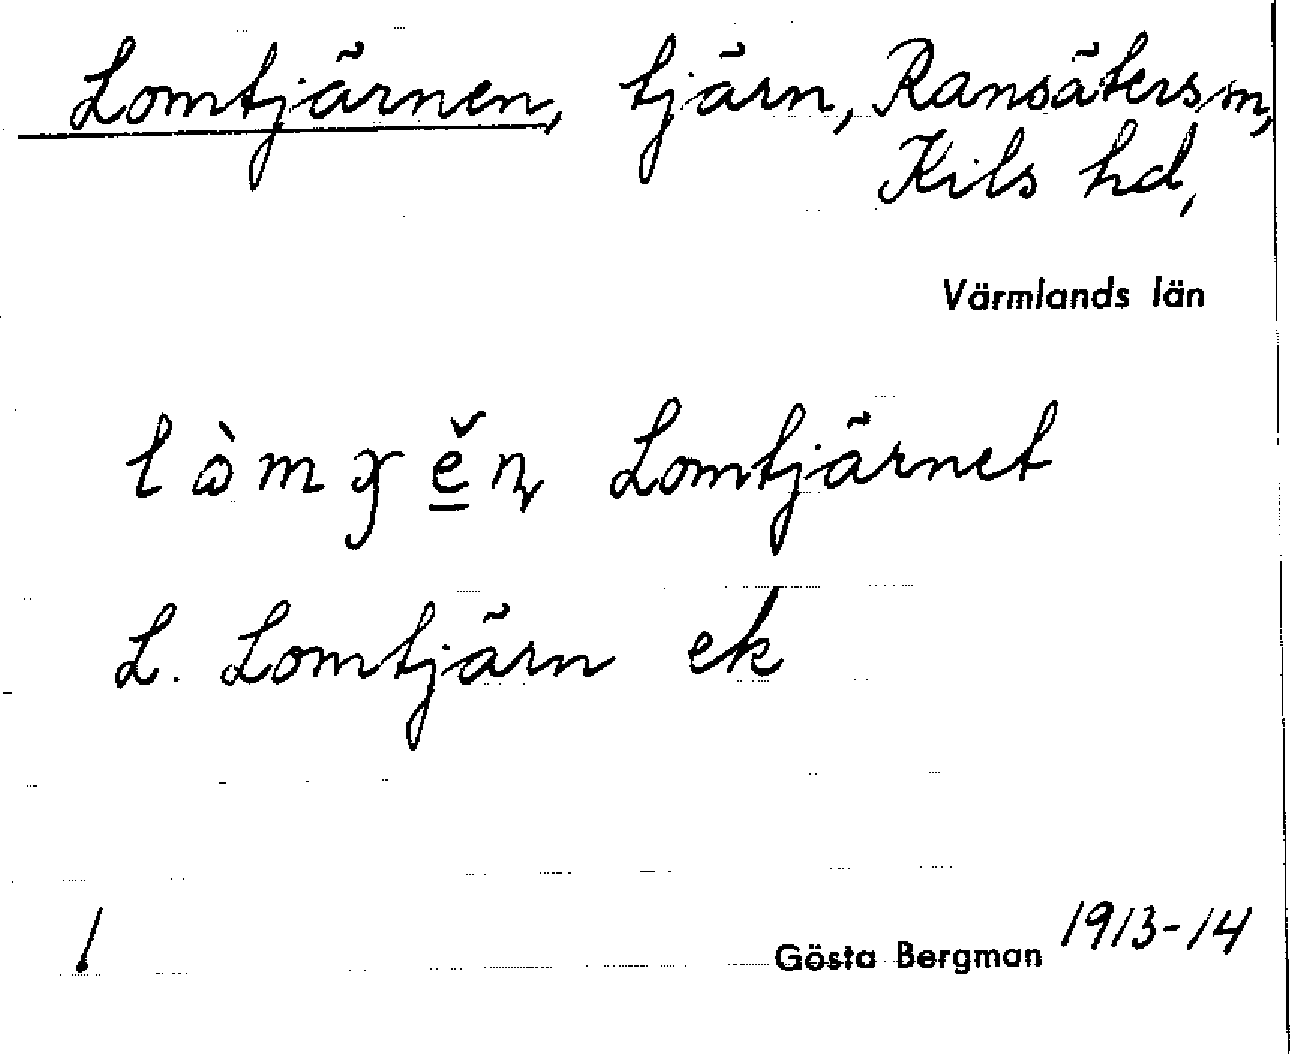 Lomtjärnen, tjärn, Ransäters sn,
Kils hd,
Värmlands län
Lomtjärnet
L. Lomtjärn ek
1
Gösta Bergman 1913-14